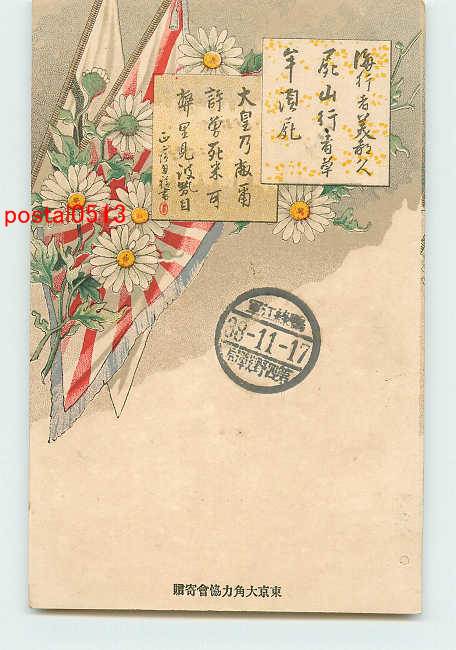 海行者美都久
屍山行者草
牟須屍
大皇乃敝爾
許曽死米可
敝里見波
postal0513
鴨緑江軍
38-11-17
東京大角力協會寄贈